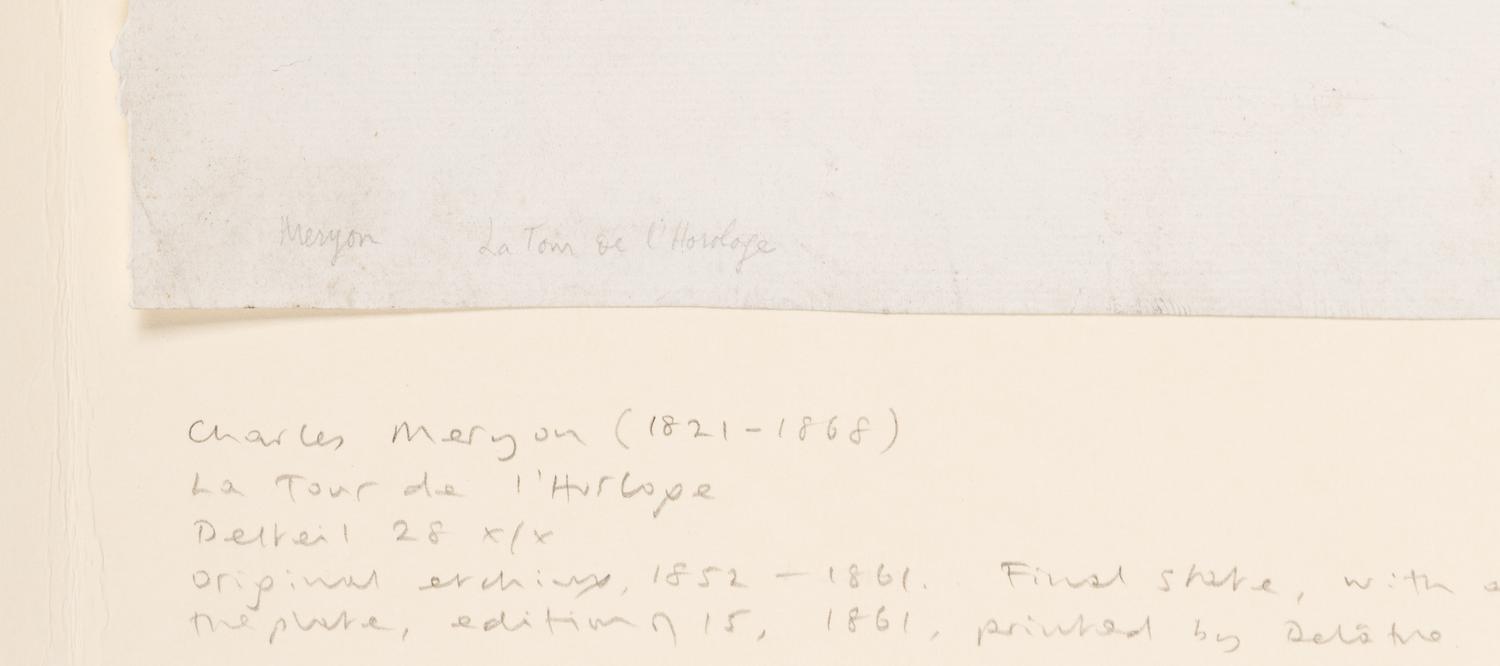 Meryon La Tour de l'Horologe
Charles Meryon (1821-1868)
La Tour de l'Horloge
Delteil 28 x/x
Original etching, 1852 - 1861. Final state, with
the plate, edition of 15, 1861, printed by Delâtre